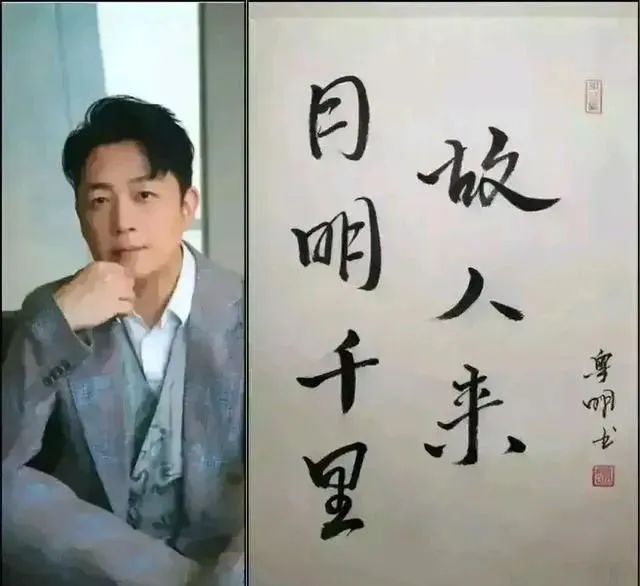 月明千里
故人来
粤明书